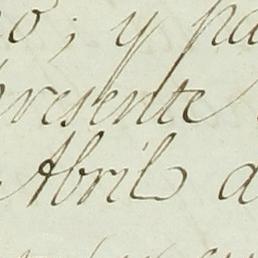 o; y pa
presente
Abril d